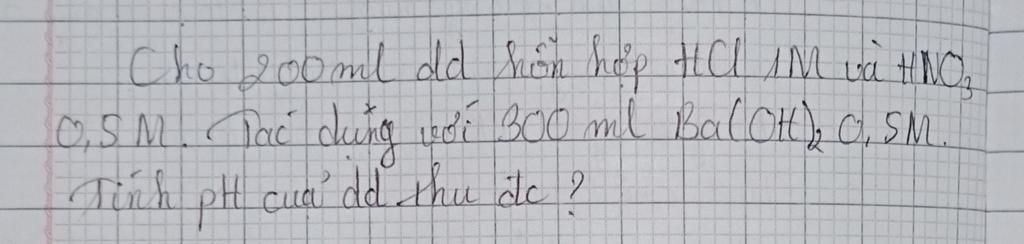 Cho 200ml dd hỗn hợp HCl 1M và HNO₃
0,5M. Tác dụng với 300 ml Ba(OH)₂ 0,5M.
Tính pH của dd thu đc ?